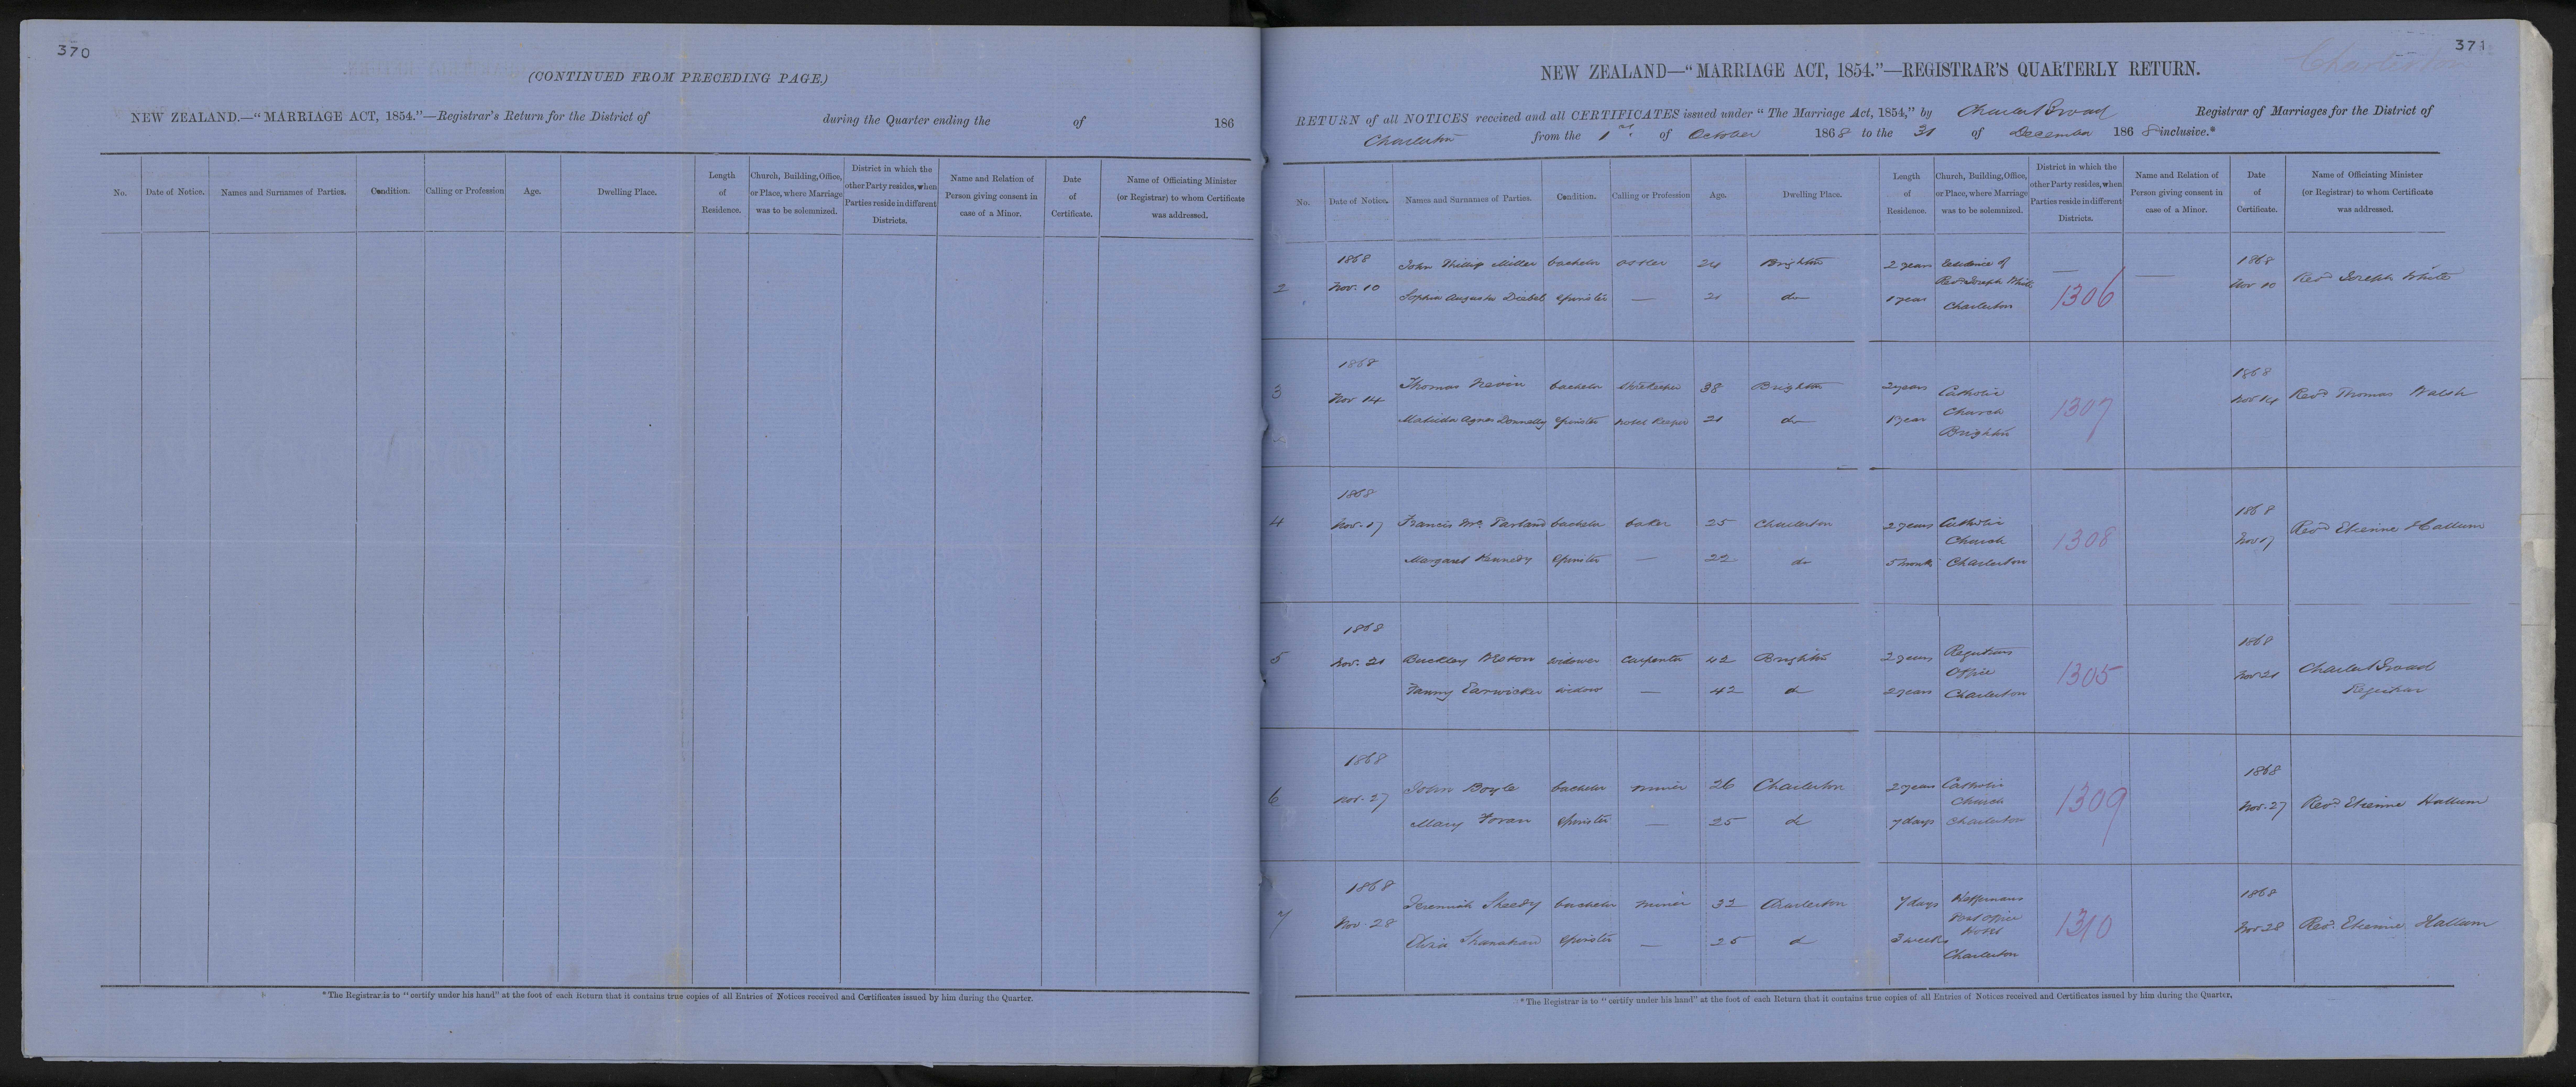 370
(CONTINUED FROM PRECEDING PAGE.)
NEW ZEALAND.—"MARRIAGE ACT, 1854."—Registrar's Return for the District of during the Quarter ending the of 186
No. Date of Notice. Names and Surnames of Parties. Condition. Calling or Profession Age. Dwelling Place. Length of Residence. Church, Building, Office, or Place, where Marriage was to be solemnized. District in which the other Party resides, when Parties reside in different Districts. Name and Relation of Person giving consent in case of a Minor. Date of Certificate. Name of Officiating Minister (or Registrar) to whom Certificate was addressed.
*The Registrar is to "certify under his hand" at the foot of each Return that it contains true copies of all Entries of Notices received and Certificates issued by him during the Quarter.
371
Charleston
NEW ZEALAND—"MARRIAGE ACT, 1854."—REGISTRAR'S QUARTERLY RETURN.
RETURN of all NOTICES received and all CERTIFICATES issued under "The Marriage Act, 1854," by Charles Broad Registrar of Marriages for the District of
Charleston from the 1st of October 1868 to the 31 of December 1868 inclusive.*
No. Date of Notice. Names and Surnames of Parties. Condition. Calling or Profession Age. Dwelling Place. Length of Residence. Church, Building, Office, or Place, where Marriage was to be solemnized. District in which the other Party resides, when Parties reside in different Districts. Name and Relation of Person giving consent in case of a Minor. Date of Certificate. Name of Officiating Minister (or Registrar) to whom Certificate was addressed.
1868 1868
2 Nov. 10 John Phillip Miller bachelor ostler 24 Brighton 2 years Residence of Revd Joseph White — — Nov 10 Revd Joseph White
Sophia Augusta Diebel spinster — 21 do 1 year Charleston 1306
1868 1868
3 Nov 14 Thomas Nevin bachelor Storekeeper 38 Brighton 2 years Catholic Church 1307 Nov 14 Revd Thomas Walsh
Matilda Agnes Donnelly spinster hotel keeper 21 do 1 year Brighton
1868 1868
4 Nov. 17 Francis Mc Parland bachelor baker 25 Charleston 2 years Catholic Church 1308 Nov 17 Revd Etienne Hallum
Margaret Kennedy spinster — 22 do 5 months Charleston
1868 1868
5 Nov. 21 Buckley widower Carpenter 42 Brighton 2 years Registrars Office 1305 Nov 21 Charles Broad
Fanny Earwicker widow — 42 do 2 years Charleston Registrar
1868 1868
6 Nov. 27 John Boyle bachelor miner 26 Charleston 2 years Catholic Church 1309 Nov. 27 Revd Etienne Hallum
Mary Foran spinster — 25 do 7 days Charleston
1868 1868
7 Nov. 28 Jeremiah Sheedy bachelor miner 32 Charleston 7 days Heffernans Post office Hotel 1310 Nov 28 Revd. Etienne Hallum
Eliza Shanahan spinster — 25 do 3 weeks Charleston
*The Registrar is to "certify under his hand" at the foot of each Return that it contains true copies of all Entries of Notices received and Certificates issued by him during the Quarter.